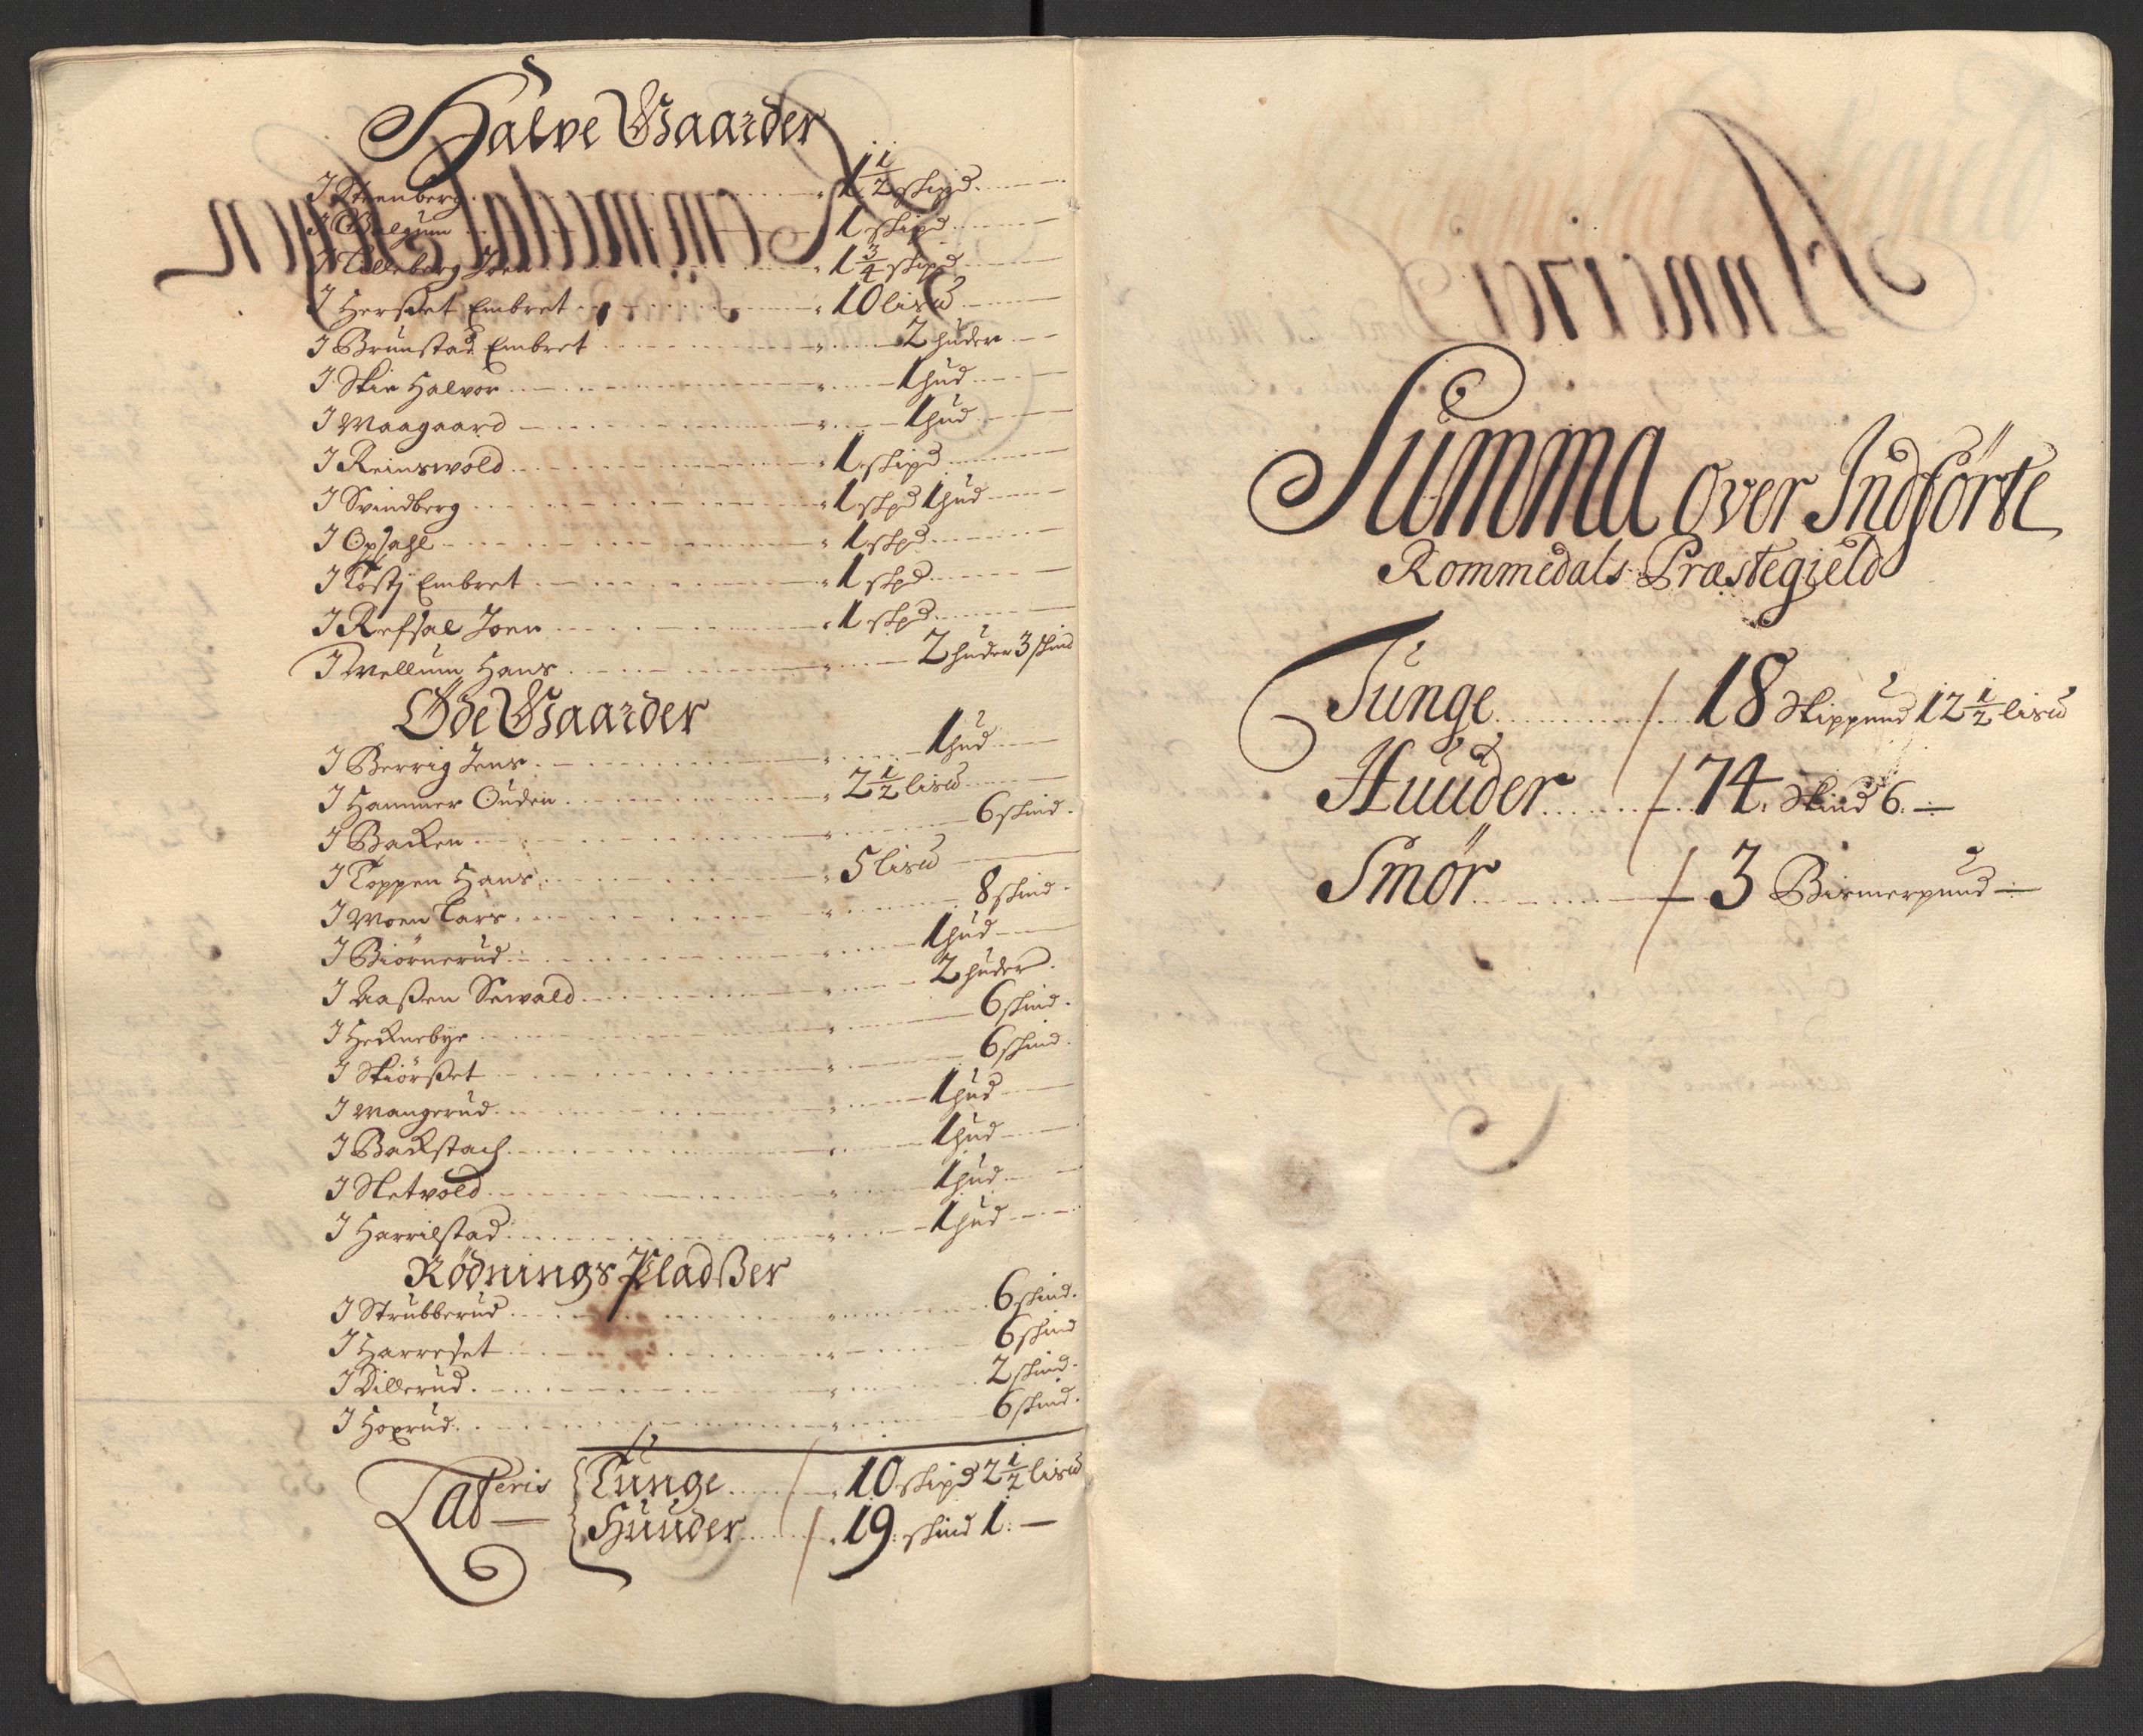 Halve Gaarder
J Steenberg 1 1/2 skipd
J Galgum 1 skipd
J Lilleberg Joen 1 3/4 skipd
J Herset Embret 10 lisd
J Brunstad Embret 2 huder
J Skie Halvor 1 hud
J Waagaard 1 hud
J Reinswold 1 skipd
J Svindberg 1 skpd 1 hud
J Opsahl 1 skpd
J Tostj Embret 1 skpd
J Refsal Joen 1 skpd
J Wellum Hans 2 huder 3 skind
Öde Gaarder
J Berrig Jens 1 hud
J Hammer Ouden 2 1/2 lisd
J Backen 6 skind
J Toppen Hans 5 lisd
J Moen Lars 8 skind
J Biörnerud 1 hud
J Aaßen Sewald 2 huder
J Hecknebye 6 skind
J Skiörset 6 skind
J Mangerud 1 hud
J Backstach 1 hud
J Sletvold 1 hud
J Harrilstad 1 hud
Rödnings Pladßer
J Strubberud 6 skind
J Harreset 6 skind
J Dillerud 2 skind
J Hoxrud 6 skind
Lateris Tunge 10 skipd 2 1/2 lisd
Huuder 19: skind 1:
Summa over Indförte
Rommedals Præstegield
Tunge 18 Skippund 12 1/2 lisd
Huuder 74. Skind 6.
Smör 3 Bismerpund